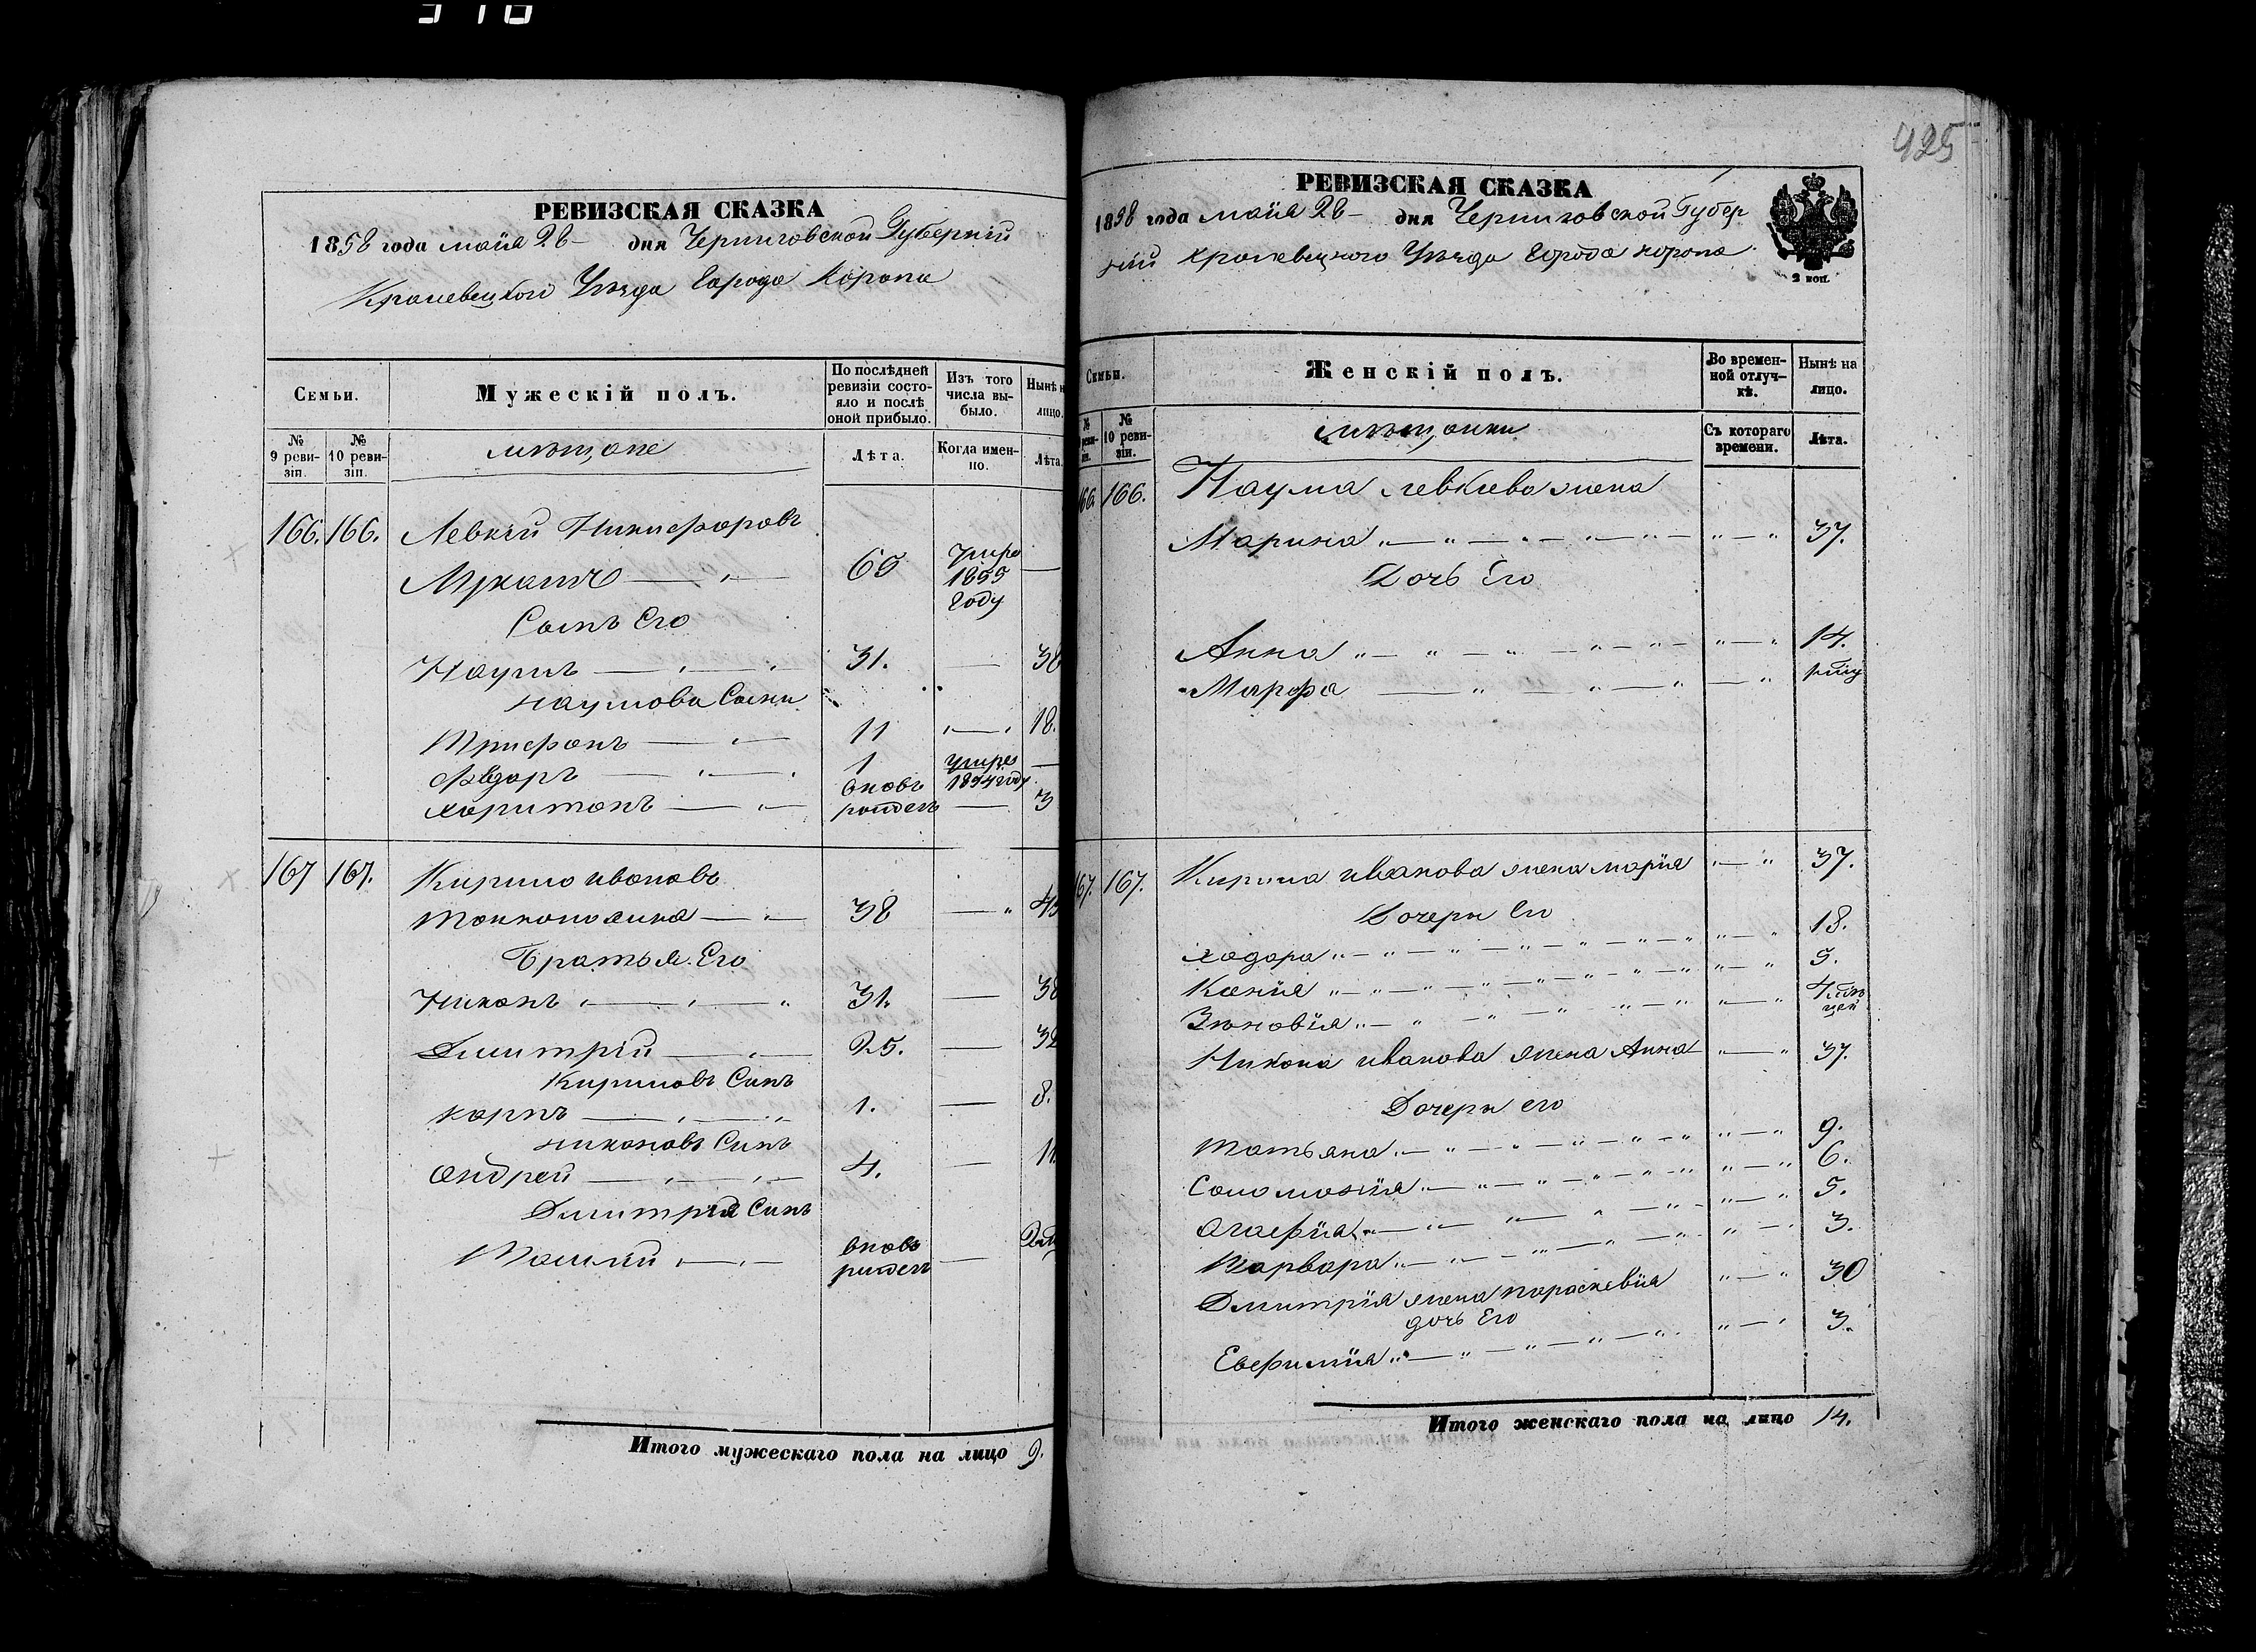 425
РЕВИЗСКАЯ СКАЗКА
1858 года маия 28 дня Черниговской Губерніи
Кролевецкого Уезда Города Коропа
Семьи.
Мужескій полъ.
По послѣдней ревизіи состояло и послѣ оной прибыло.
Изъ того числа выбыло.
Нынѣ н лицо.
№ 9 ревизіи.
№ 10 ревизіи.
мещане
Лѣта.
Когда именно.
Лѣта.
166. 166. Левкій Никифоровъ
65 умре 1855 году —
Сынъ Его
Наумъ 31. — 38
Наумови Сыни
Трифонъ 11 18.
Федоръ 1 умре 1854 году —
Харитонъ вновь рожденъ — 3
167 167. Кирило ивановъ
38 — 45
Братья Его
Никонъ 31. — 38
Дмитрій 25. — 32
Кириловъ Синъ
Карпъ 1. — 8.
Никоновъ Синъ
Андрей 4. — 11.
Дмитрія Синъ
вновь рожденъ —
Итого мужескаго пола на лицо 9.
РЕВИЗСКАЯ СКАЗКА
1858 года маия 28 дня Черниговской Губер
ніи Кролевецкого Уезда Города Коропа
2 коп.
Семьи.
Женскій полъ.
Во временной отлучкѣ.
Нынѣ на лицо.
№ реви- зіи.
№ 10 ревизіи.
мещанки
Съ котораго времени.
Лѣта.
166. 166. Наума левкиева жена
Марина 37.
Дочь Его
Анна 14.
Марфа
167. 167. Кирила иванова жена мария 37.
Дочери Его
Ходора 18.
Ксенія 5.
Зѣновія
Никона иванова жена Анна 37.
Дочери его
Татьяна 9.
Соломонія 6.
Агафія 5.
Варвара 3.
Дмитрія жена параскевія 30
дочь Его
Евфимія 3.
Итого женскаго пола на лицо 14.